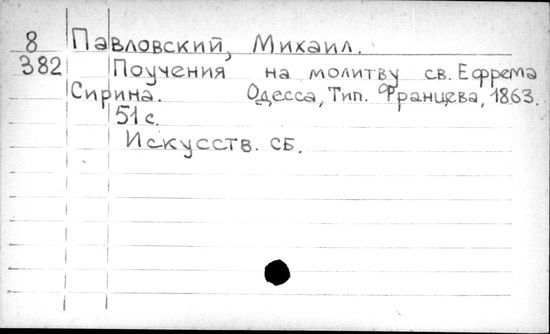 8 Павловский, Михаил.
382 Поучения на молитву св. Ефрема
Сирина. Одесса, Тип. Францева, 1863.
51 с.
Искусств. сб.